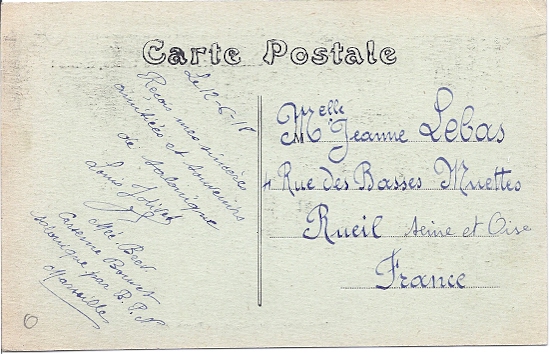 Carte Postale
Le 12-6-18
Reçois mes sincère
amitiées et souvenirs
de salonique
Louis
Caserne
salonique par B.P.N
Marseille
Melle Jeanne Lebas
4 Rue des Basses Muettes
Rueil Seine et Oise
France